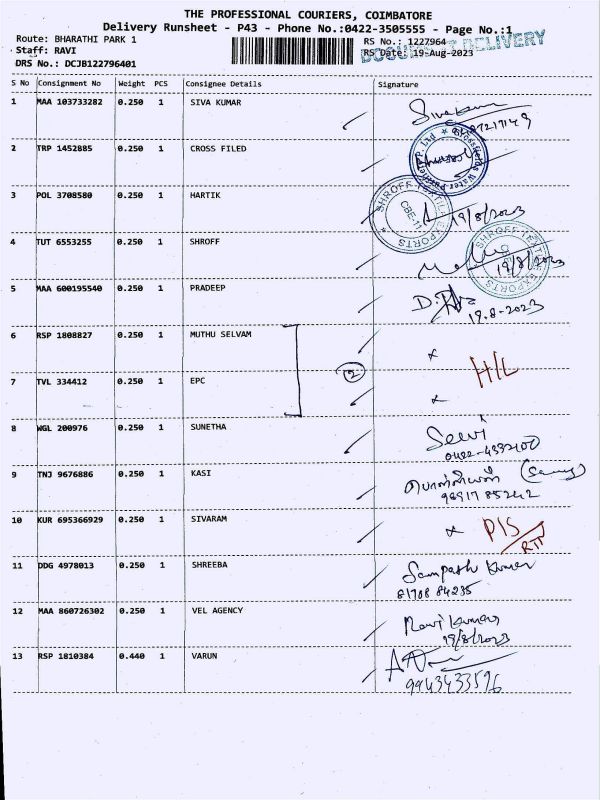 THE PROFESSIONAL COURIERS, COIMBATORE
Delivery Runsheet - P43 - Phone No.:0422-3505555 - Page No.:1
Route: BHARATHI PARK 1 RS No.: 1227964
Staff: RAVI RS Date: 19-Aug-2023
DRS No.: DCJB122796401
DOCUMENT DELIVERY
S No Consignment No Weight PCS Consignee Details Signature
1 MAA 103733282 0.250 1 SIVA KUMAR
2 TRP 1452885 0.250 1 CROSS FILED
3 POL 3708580 0.250 1 HARTIK 19/8/2023
SHROFF TEXTILE EXPORTS CBE-11
4 TUT 6553255 0.250 1 SHROFF 19/8/2023
SHROFF TEXTILE EXPORTS
5 MAA 600195540 0.250 1 PRADEEP 19.8-2023
6 RSP 1808827 0.250 1 MUTHU SELVAM x
2 H/L
7 TVL 334412 0.250 1 EPC x
8 WGL 200976 0.250 1 SUNETHA Selvi
9 TNJ 9676886 0.250 1 KASI
10 KUR 695366929 0.250 1 SIVARAM x P/S
11 DDG 4978013 0.250 1 SHREEBA Sampath Kumar
81708 84235
12 MAA 860726302 0.250 1 VEL AGENCY Ravi Kumar
19/8/2023
13 RSP 1810384 0.440 1 VARUN
9943433596